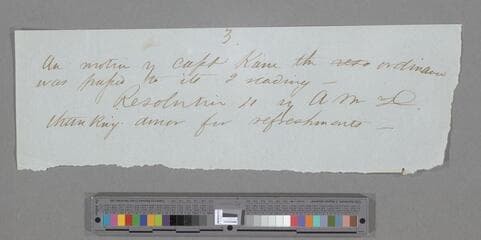 3
On motion of Capt Kane the ordinance
was passed to its 2 reading —
Resolution
thanking donor for refreshments —